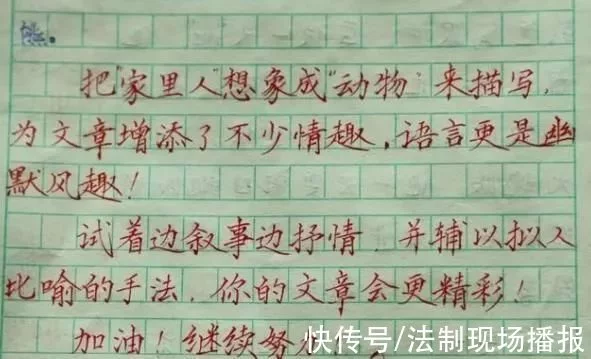 熊.
把"家里人"想象成"动物"来描写，
为文章增添了不少情趣，语言更是幽
默风趣！
试着边叙事边抒情，并辅以拟人
比喻的手法，你的文章会更精彩！
加油！继续努
快传号/法制现场播报